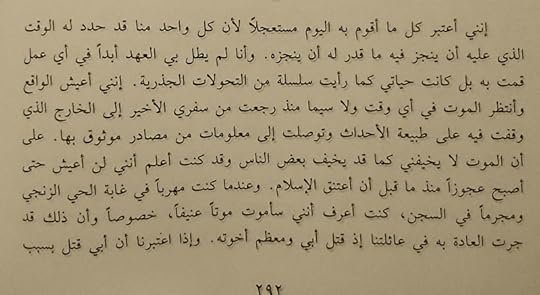 إنني أعتبر كل ما أقوم به اليوم مستعجلاً لأن كل واحد منا قد حدد له الوقت
الذي عليه أن ينجز فيه ما قدر له أن ينجزه. وأنا لم يطل بي العهد أبداً في أي عمل
قمت به بل كانت حياتي كما رأيت سلسلة من التحولات الجذرية. إنني أعيش الواقع
وأنتظر الموت في أي وقت ولا سيما منذ رجعت من سفري الأخير إلى الخارج الذي
وقفت فيه على طبيعة الأحداث وتوصلت إلى معلومات من مصادر موثوق بها. على
أن الموت لا يخيفني كما قد يخيف بعض الناس وقد كنت أعلم أنني لن أعيش حتى
أصبح عجوزاً منذ ما قبل أن أعتنق الإسلام. وعندما كنت مهرباً في غابة الحي الزنجي
ومجرماً في السجن، كنت أعرف أنني سأموت موتاً عنيفاً، خصوصاً وأن ذلك قد
جرت العادة به في عائلتنا إذ قتل أبي ومعظم أخوته. وإذا اعتبرنا أن أبي قتل بسبب
٢٩٢